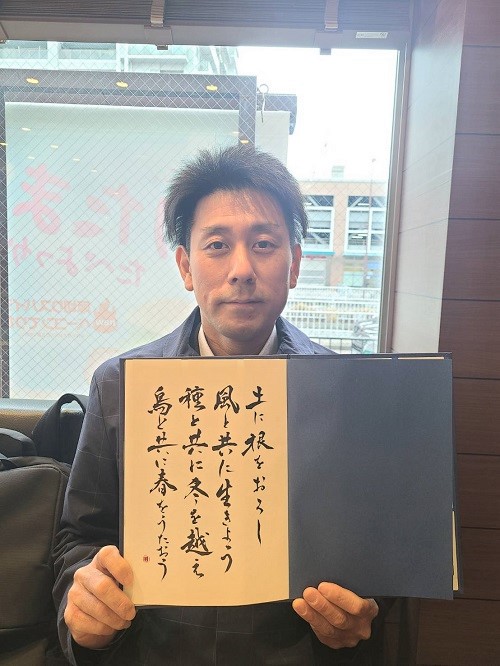 土に根をおろし
風と共に生きよう
種と共に冬を越え
鳥と共に春をうたおう
たま
たべよっか